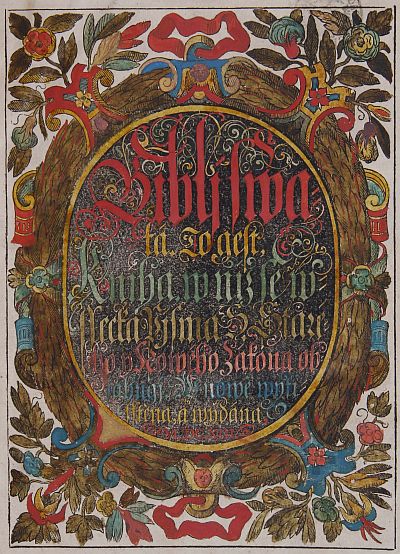 Biblj swa
tá. To gest,
Kniha, w njž se w
ssecka Pjsma S. Stare
ho y Noweho Zakona ob
sahugj. W nowe wyti
sstena, a wydana